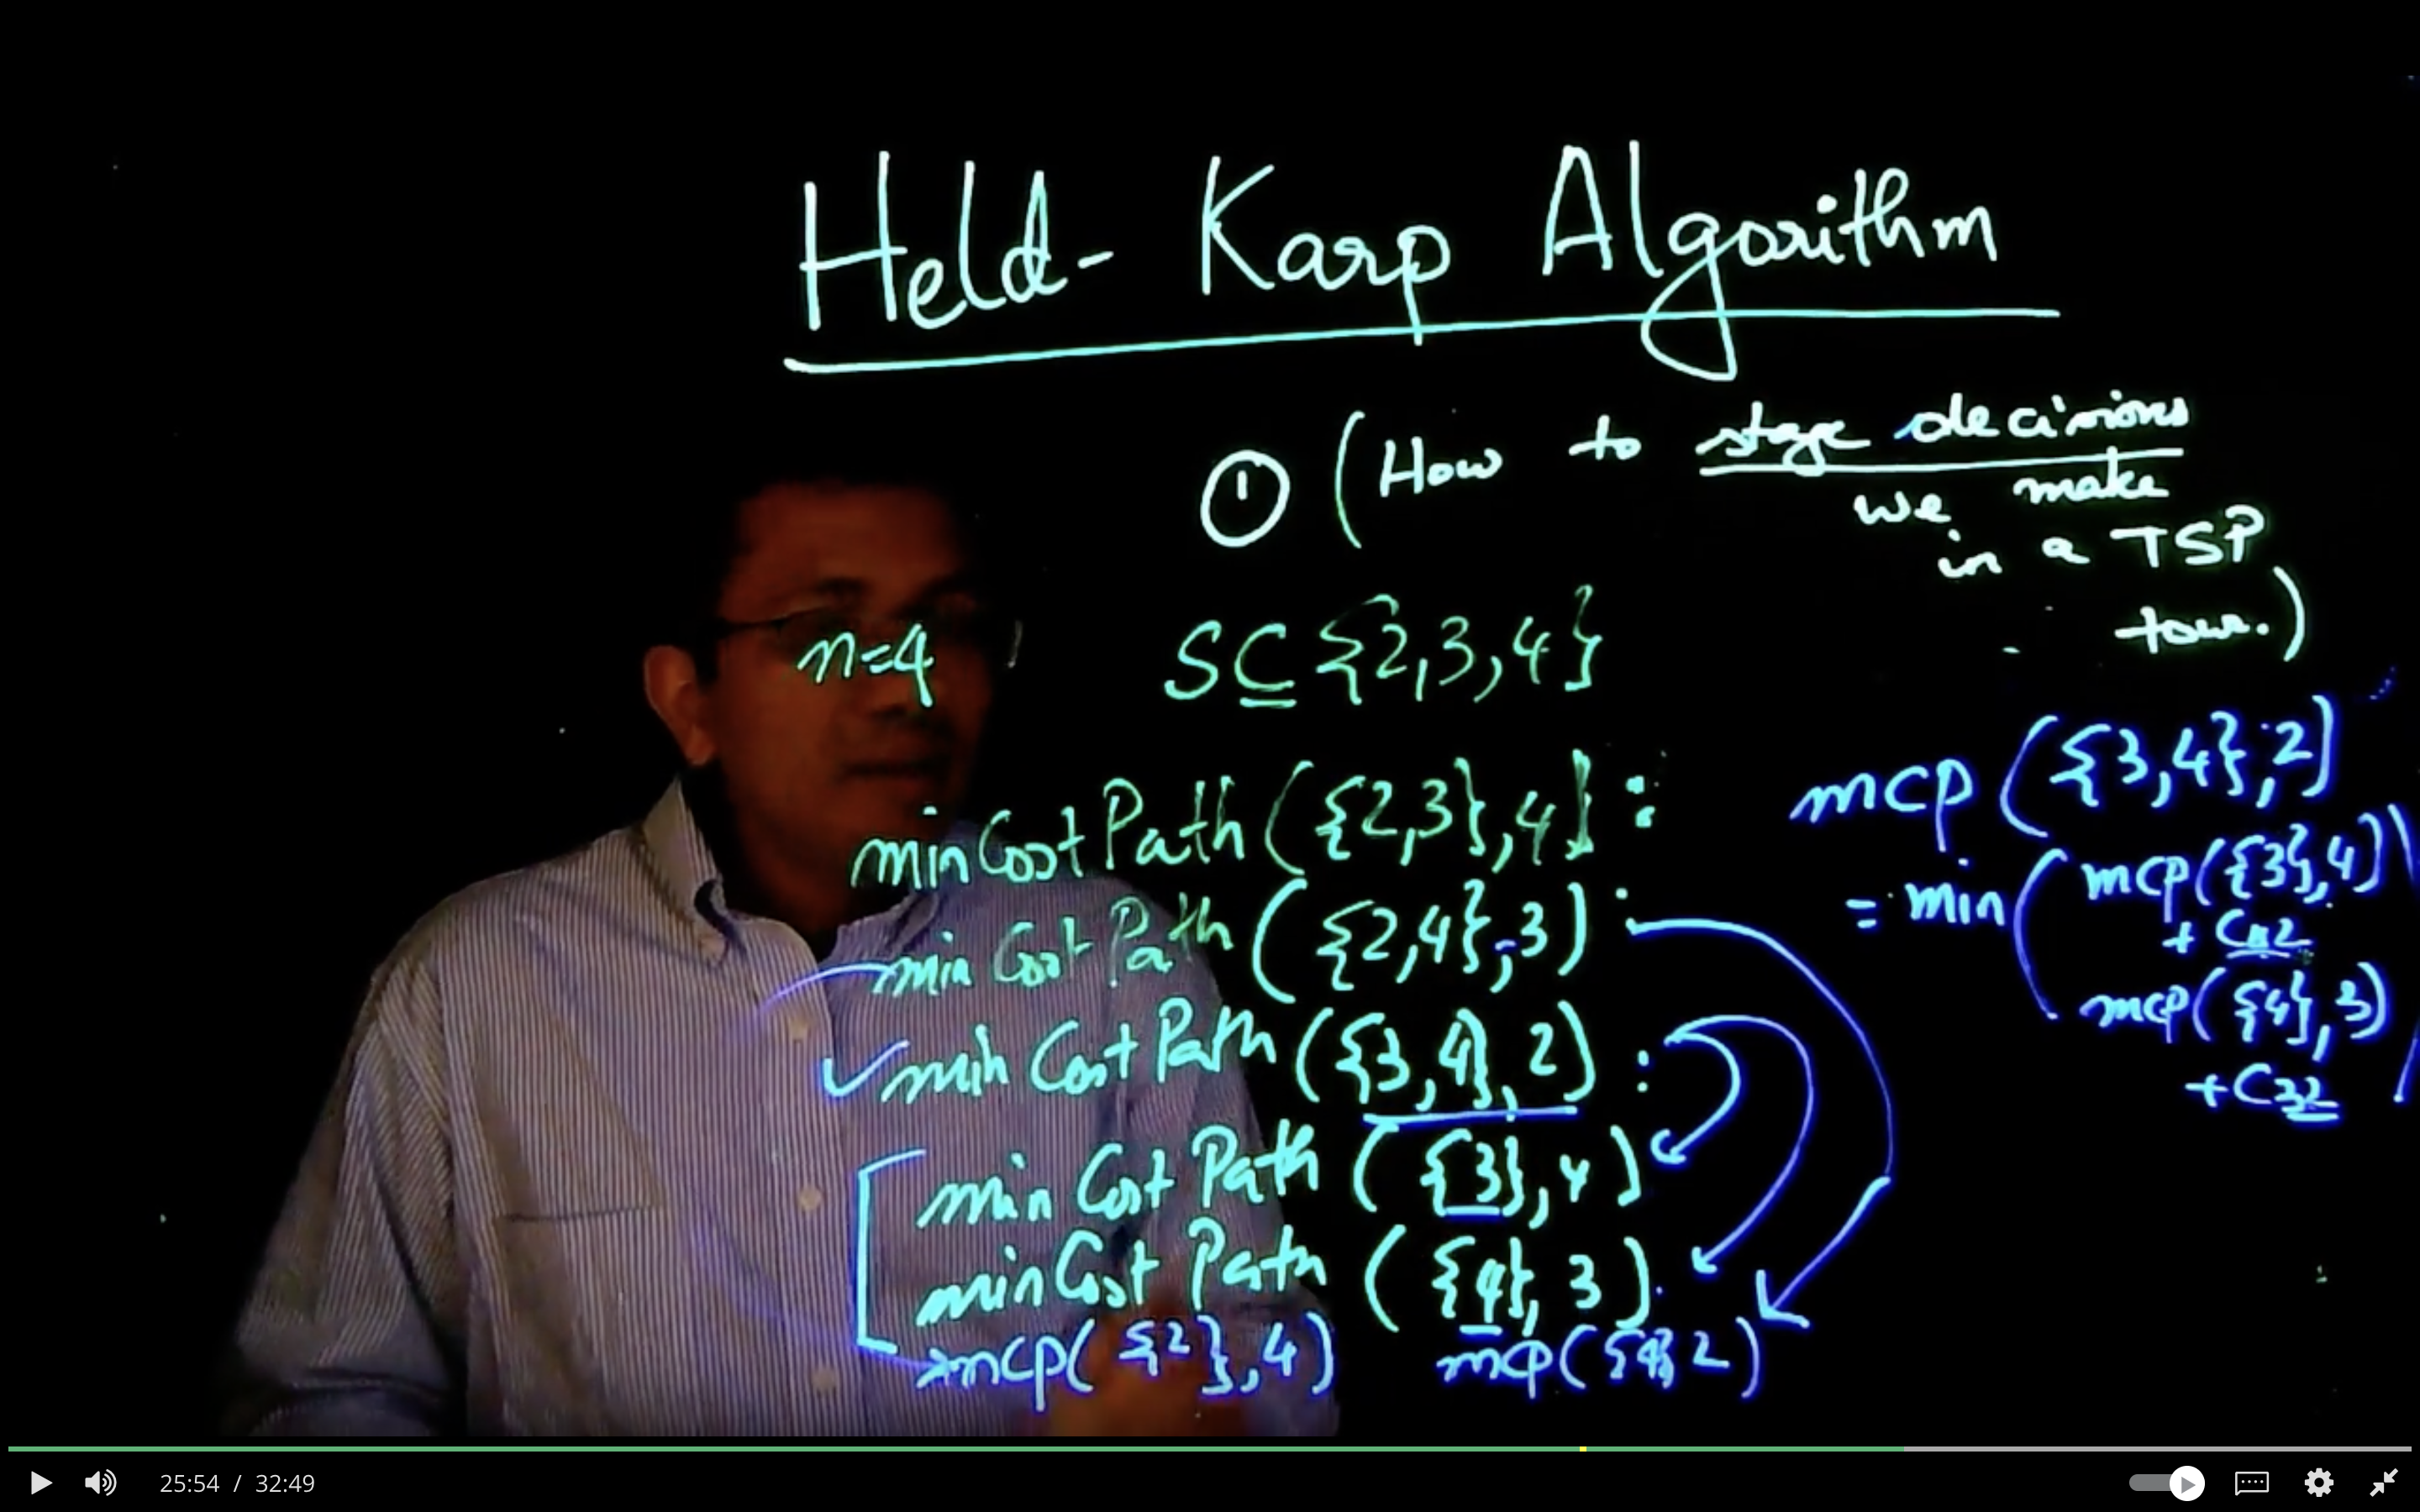 Held- Karp Algorithm
① (How to stage decisions
we make
in a TSP
tour.)
n=4
S⊆{2,3,4}
minCostPath({2,3},4):
min Cost Path({2,4},3):
✓min Cost Path({3,4},2):
min Cost Path({3},4)
minCost Path({4},3).
mcp({2},4) mcp({4},2)
mcp({3,4},2)
= min(mcp({3},4)
+ C42
mcp({4},3)
+C32)
25:54 / 32:49